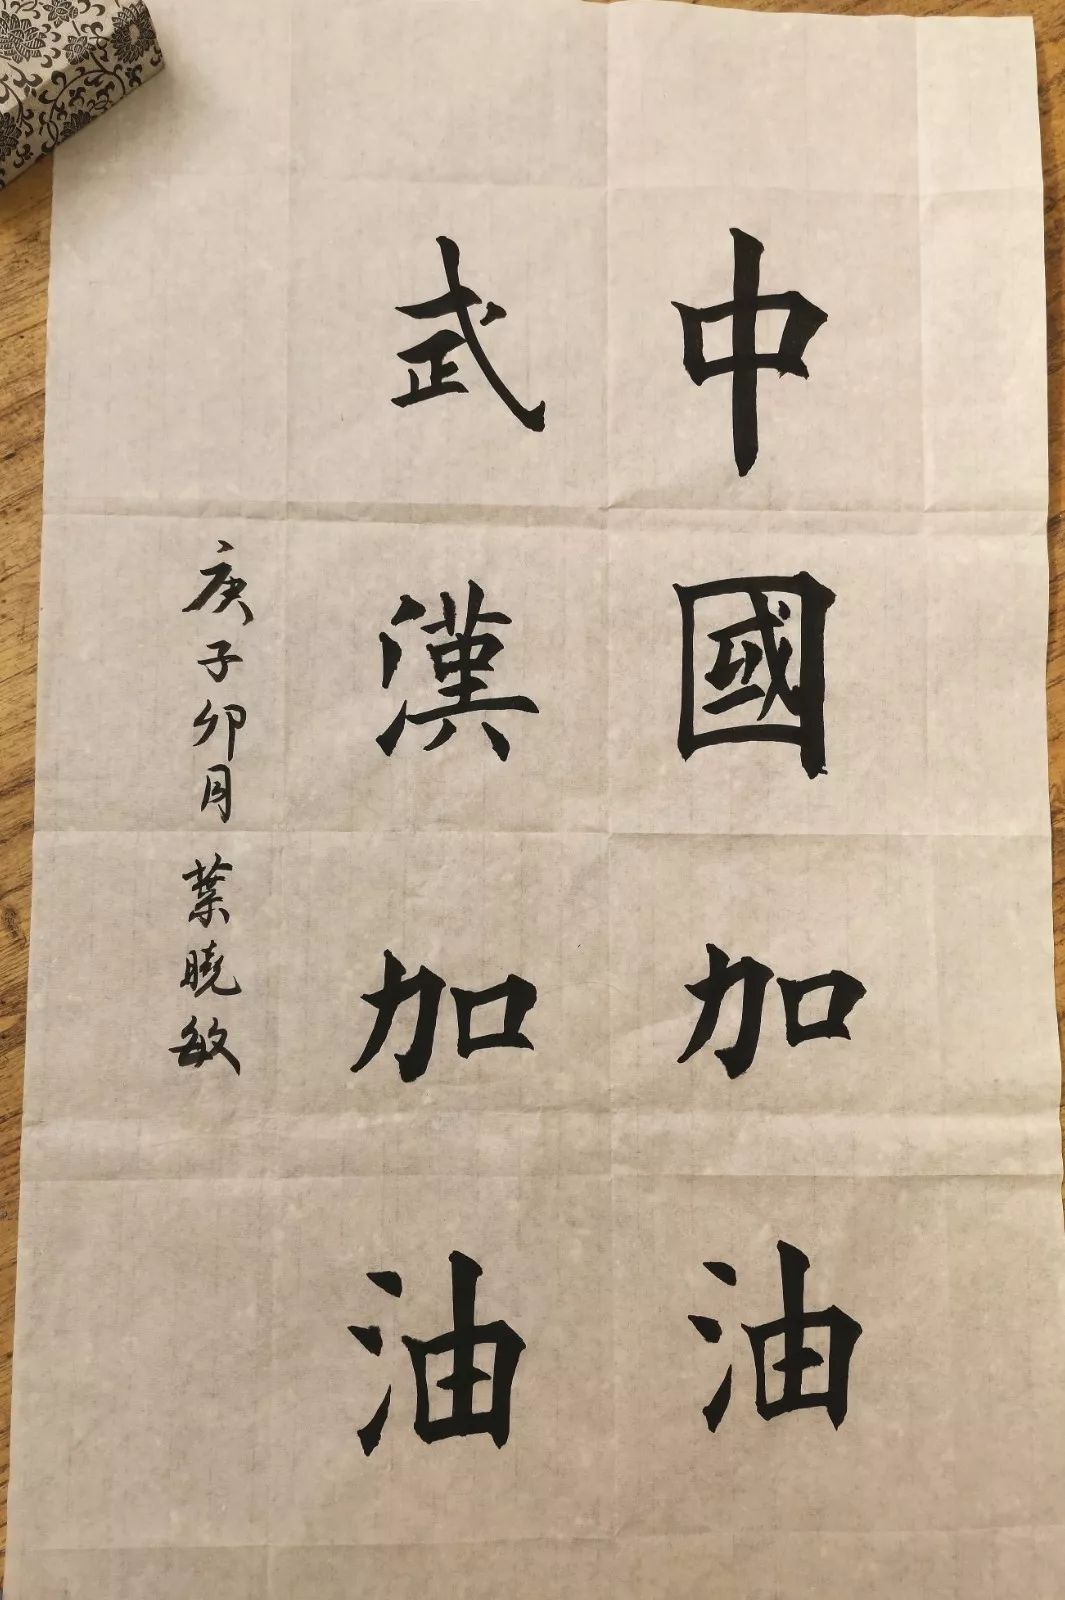 中國加油
武漢加油
庚子卯月 葉曉敏